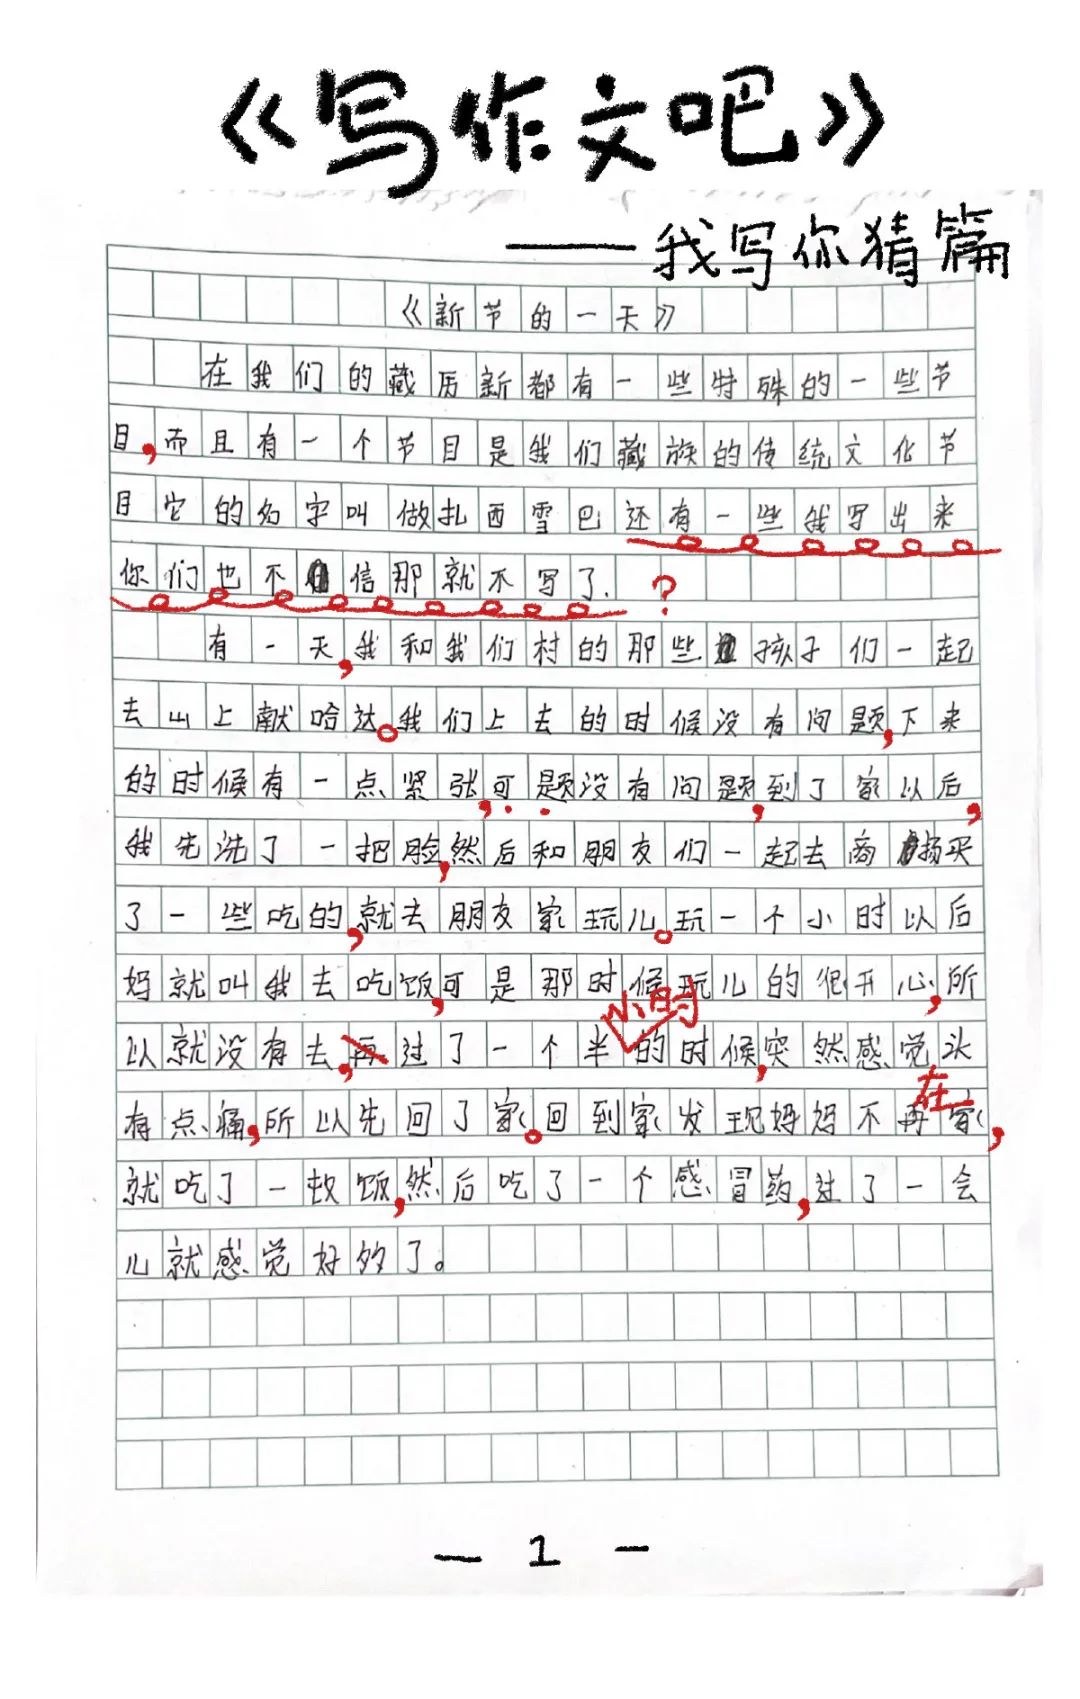 《写作文吧》
——我写你猜篇
《新节的一天》
在我们的藏历新都有一些特殊的一些节
目,而且有一个节目是我们藏族的传统文化节
目它的名字叫做扎西雪巴还有一些我写出来
你们也不信那就不写了. ?
有一天,我和我们村的那些孩子们一起
去山上献哈达。我们上去的时候没有问题,下来
的时候有一点紧张,可题没有问题,到了家以后,
我先洗了一把脸,然后和朋友们一起去商场买
了一些吃的,就去朋友家玩儿。玩一个小时以后
妈就叫我去吃饭,可是那时候玩儿的很开心,所
小时
以就没有去,再过了一个半的时候,突然感觉头
在
有点痛,所以先回了家。回到家发现妈妈不再家,
就吃了一顿饭,然后吃了一个感冒药,过了一会
儿就感觉好多了。
— 1 —